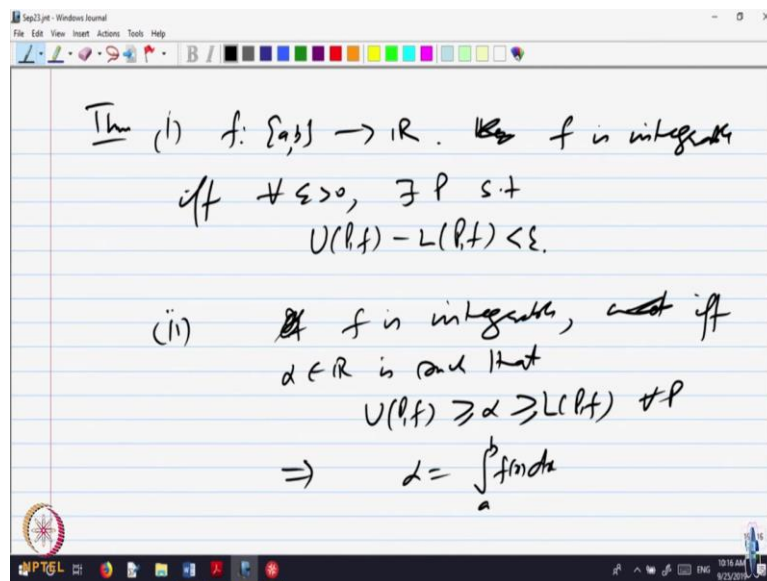 Sep23.jnt - Windows Journal
File Edit View Insert Actions Tools Help
B I
Thm (i) f: [a,b] → IR. f is integrable
iff ∀ ε>0, ∃ P s.t
U(P,f) - L(P,f) < ε.
(ii) f is integrable, iff
α ∈ IR is such that
U(P,f) ≥ α ≥ L(P,f) ∀ P
⇒ α = ∫_a^b f(x)dx
NPTEL ENG 10:16 AM
9/25/2019